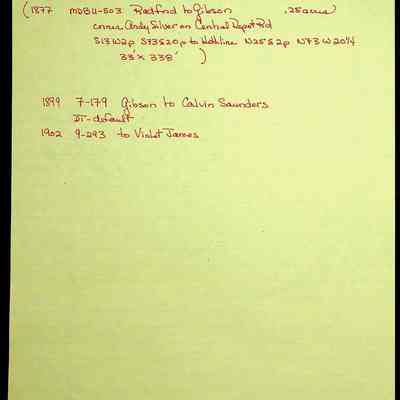 (1877 MDBU-503 Radford to Gibson .25 acre
corner Andy Silver on Central Depot Rd
S13W2p S73E20p to Noth line N25E2p N73W20¼
33' x 338' )
1899 7-179 Gibson to Calvin Saunders
DT-default
1902 9-293 to Violet James